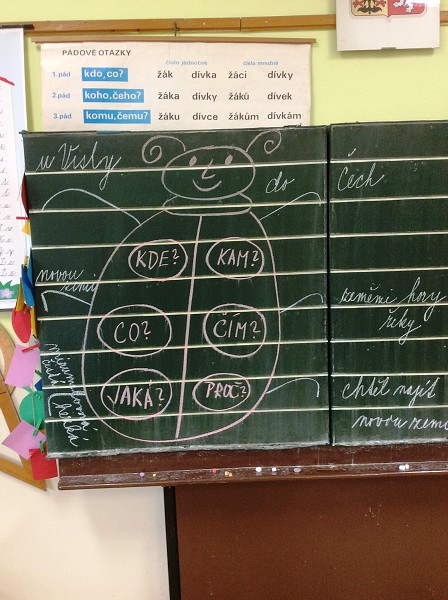 PÁDOVÉ OTÁZKY
číslo jednotné číslo množné
1.pád kdo,co? žák dívka žáci dívky
2.pád koho,čeho? žáka dívky žáků dívek
3.pád komu,čemu? žáku dívce žákům dívkám
u Visly
do Čech
KDE? KAM?
novou zemi
zeměmi hory
řeky
CO? ČÍM?
JAKÁ? PROČ?
chtěl najít
novou zemi